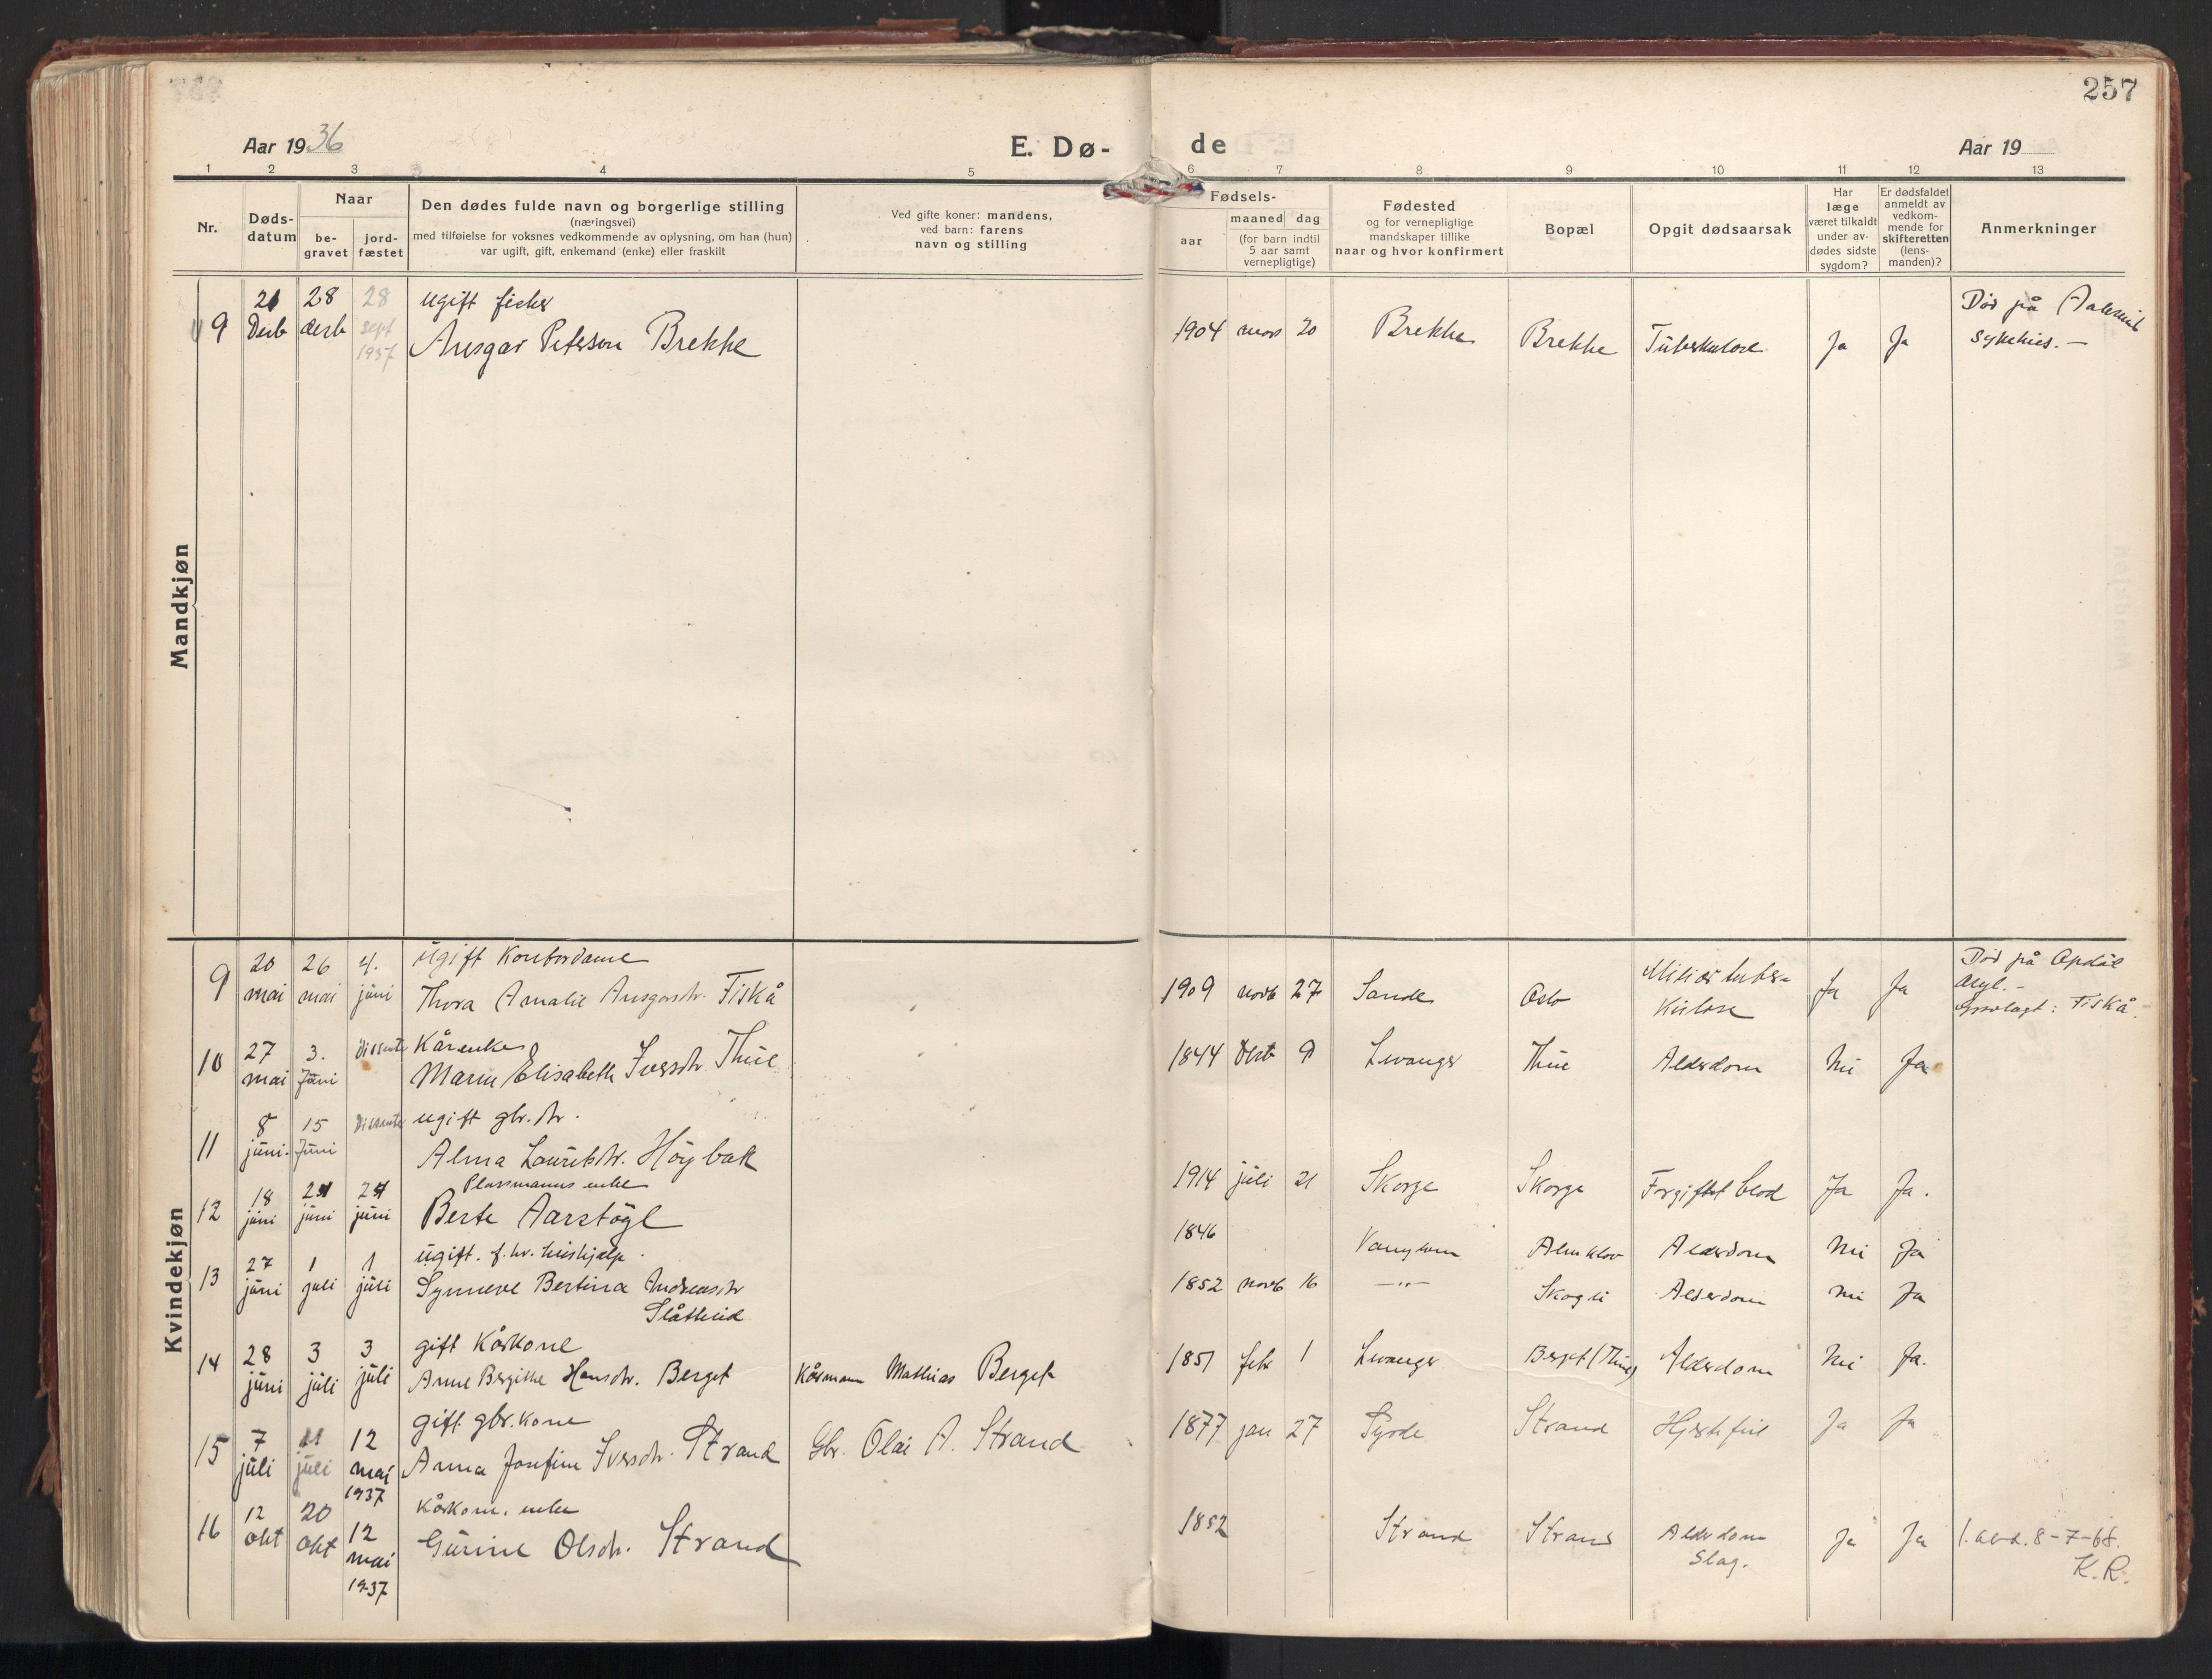 257
Aar 1936
E. Dø-
de
Aar 19
1 2 3 4 5 6 7 8 9 10 11 12 13
Nr.
Døds-
datum
Naar
be-
gravet
jord-
fæstet
Den dødes fulde navn og borgerlige stilling
(næringsvei)
med tilføielse for voksnes vedkommende av oplysning, om han (hun)
var ugift, gift, enkemand (enke) eller fraskilt
Ved gifte koner: mandens,
ved barn: farens
navn og stilling
Fødsels-
aar
maaned dag
(for barn indtil
5 aar samt
vernepligtige)
Fødested
og for vernepligtige
mandskaper tillike
naar og hvor konfirmert
Bopæl
Opgit dødsaarsak
Har
læge
været tilkaldt
under av-
dødes sidste
sygdom?
Er dødsfaldet
anmeldt av
vedkom-
mende for
skifteretten
(lens-
manden)?
Anmerkninger
Mandkjøn
9 21 Desb 28 desb 28 sept 1937 ugift fisker
Ansgar Petersen Brekke 1904 mars 20 Brekke Brekke Tuberkulose Ja Ja Død på Aalesund
sykehus. —
Kvindekjøn
9 20 mai 26 mai 4. juni ugift Kontordame
Thora Amalie Ansgarsdr. Fiskå 1909 novb 27 Sande Oslo Miliær tuber-
kulose Ja Ja Død på Opdal
Gravlagt: Fiskå.
10 27 mai 3. Juni Dissenter Kårenke
Marie Elisabeth Iversdr. Thue 1844 9 Lvanger Thue Alderdom Nei Ja
11 8 juni. 15 Juni Dissenter ugift gbr. dtr.
Alma Lauritsdtr. Høybak 1914 juli 21 Skorge Skorge Forgiftet blod Ja Ja.
12 18 juni 21 juni 21 juni Plassmanns enke
Berte Aarstøyl 1846 Vanylven Almklov Alderdom Nei Ja
13 27 juni 1 juli 1 juli ugift. f. hv. hushjælp.
Synneve Bertina Andreasdtr
Slåtteid 1852 novb 16 —"— Skogli Alderdom Nei Ja
14 28 juni 3 juli 3 juli gift Kårkone
Anne Bergitte Hansdtr. Berget Kårmann Mathias Berget 1851 feb 1 Lvanger Berget (Thue) Alderdom Nei Ja.
15 7 juli 11 juli 12 mai 1937 gift gbr. kone
Anna Josefine Iversdr. Strand Gbr. Olai A. Strand 1877 jan 27 Syvde Strand Hjertefeil Ja Ja
16 12 okt 20 okt 12 mai 1937 Kårkone. enke
Gurine Olsdr. Strand 1852 Strand Strand Alderdom
Slag. Ja Ja 8-7-68.
K.R.